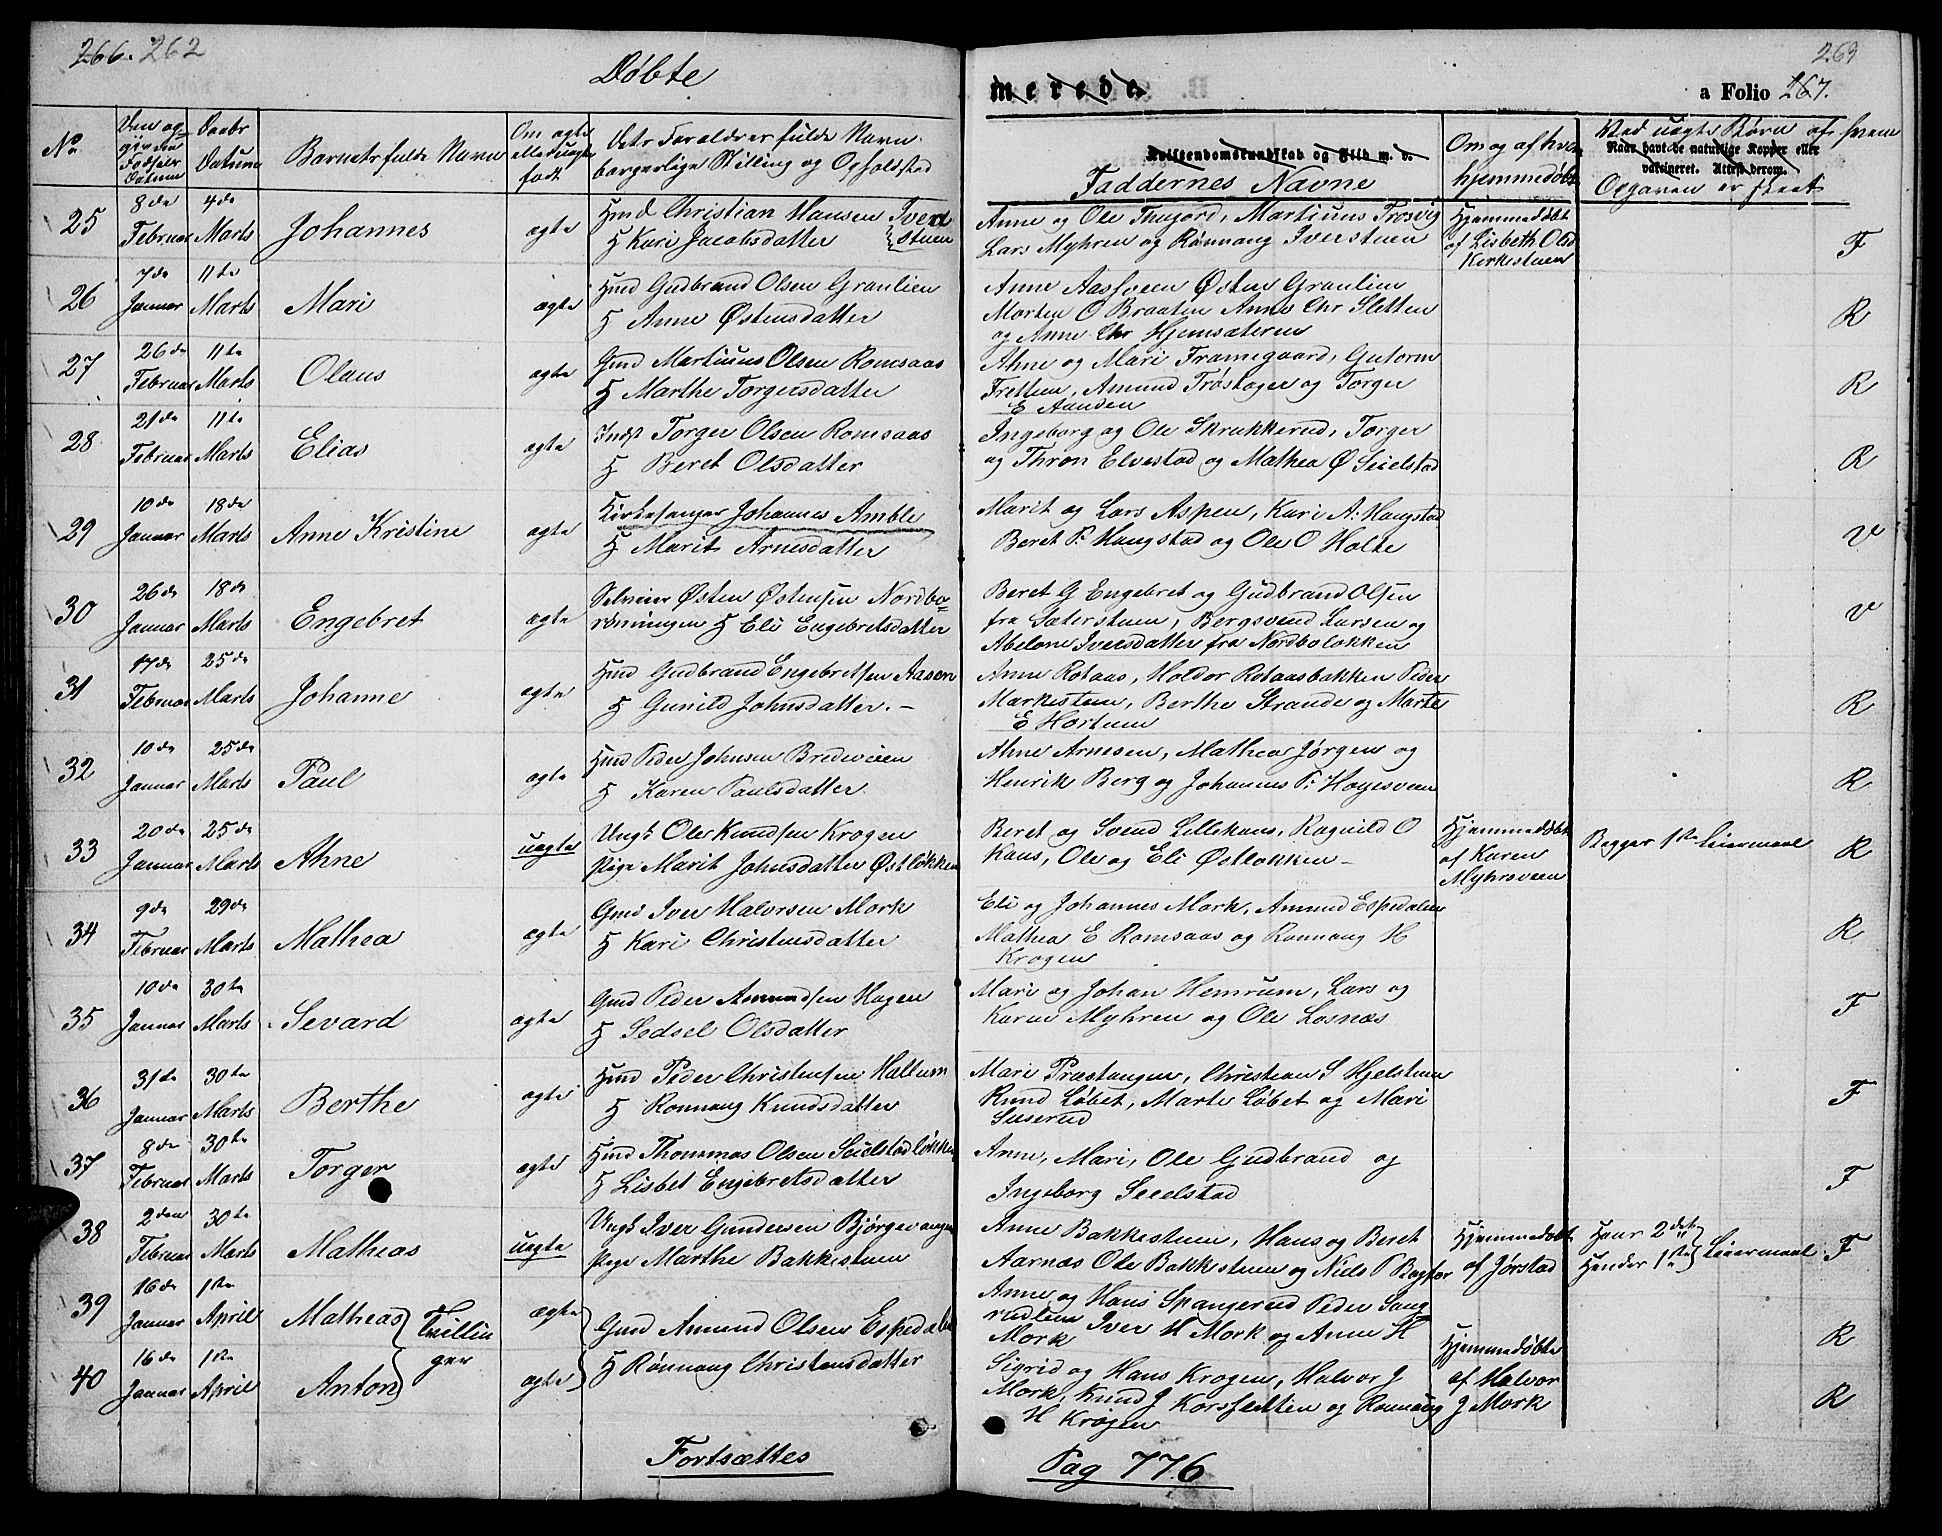 266. 262
Døbte
merede.
263
a Folio 267.
No
Den op-
givne
Fødsels
Datum
Daabs
Datum
Barnets fulde Navn
Om ægte
eller uægte
født
Dets Forældres fulde Navn
borgerlige Stilling og Opholdsted
Kristendomskundskab og Flid m. v.
Faddernes Navne
Om og af hvem
hjemmedøbt
Ved uægte Børn af hvem
Naar havt de naturlige Kopper eller
vaksineret. Attest derom.
Opgaven er skeet
25
8de
Februar
4de
Marts
Johannes
ægte
Hmd Christian Hansen Iver
stuen
H Kari Jacobsdatter
Anne og Ole Thujord, Martinus Trosvig
Lars Myhren og Rønnaug Iverstuen
Hjemmedøbt
af Lisbeth Olsd
Kirkestuen
F
26
7de
Januar
11te
Marts
Mari
ægte
Hmd Gudbrand Olsen Granlien
H Anne Østensdatter
Anne Aassveen Østen Granlien
Morten O Braaten Anne Chr Sletten
og Anne Chr Hjemsæteren
R
27
26de
Februar
11te
Marts
Olaus
ægte
Gmd Martinus Olsen Romsaas
H Marthe Torgersdatter
Ahne og Mari Framegaard, Gutorm
Fretten, Amund Trøstager og Torger
E Aunden
R
28
21de
Februar
11te
Marts
Elias
ægte
Indst Torger Olsen Romsaas
H Beret Olsdatter
Ingeborg og Ole Skrukkerud, Torger
og Thron Elvestad og Mathea Ø Seielstad
R
29
10de
Januar
18de
Marts
Anne Kristine
ægte
Kirkesanger Johannes Amble
H Marit Arnesdatter
Marit og Lars Aspen, Kari A. Haugstad
Beret P. Haugstad og Ole O Holte
V
30
26de
Januar
18de
Marts
Engebret
ægte
Selveier Østen Østensen Nordbo-
rdningen H Eli Engebretsdatter
Beret G Engebret og Gudbrand Olsen
fra Sæterstuen, Bergsvend Larsen og
Abelone Iversdatter fra Nordboløkken
V
31
17de
Februar
25de
Marts
Johanne
ægte
Hmd Gudbrand Engebretsen Aasen
H Gunild Johnsdatter. –
Anne Rotaas, Holdor Rotaasbakken Peder
Markestuen, Berthe Strande og Marte
E Hortuen
R
32
10de
Januar
25de
Marts
Paul
ægte
Hmd Peder Johnsen Bredeveien
H Karen Paulsdatter
Ahne Arnesen, Mathea Jørgen og
Henrik Berg og Johannes P. Hagesveen
R
33
20de
Januar
25de
Marts
Ahne
uægte
Ungk Ole Knudsen Krogen
Pige Marit Johnsdatter Østløkken
Beret og Svend Lillehaus, Ragnild O
Kaus, Ole og Eli Østløkken –
Hjemmedøbt
af Karen
Myhrsveen
Begges 1ste Leiermaal
R
34
9de
Februar
29de
Marts
Mathea
ægte
Gmd Iver Halvorsen Mork
H Kari Christensdatter
Eli og Johannes Mork, Amund Espedalen
Mathea E Romsaas og Rønnaug H
Krogen
R
35
10de
Januar
30te
Marts
Sevard
ægte
Gmd Peder Amundsen Hagen
H Sedsel Olsdatter
Mari og Johan Hemrum, Lars og
Karen Myhren og Ole Losnæs
F
36
31te
Januar
30te
Marts
Berthe
ægte
Hmd Peder Christensen Hallum
H Rønnaug Knudsdatter
Mari Præstangen, Christian S Hjelstuen
Knud Løbet, Marte Løbet og Mari
Suserud
F
37
8de
Februar
30te
Marts
Torger
ægte
Hmd Thommas Olsen Seielstadløkken
H Lisbet Engebretsdatter
Anne, Mari, Ole Gudbrand og
Ingeborg Seielstad
F
38
2den
Februar
30te
Marts
Mathias
uægte
Ungk Iver Gundersen Bjørgevangen
Pige Marthe Bakkestuen
Anne Bakkestuen, Hans og Beret
Aarnæs Ole Bakkestuen og Niels P Bagfor
Hjemmedøbt
af Jørstad
Hans 2det
Hendes 1ste
Leiermaal
F
39
16de
Januar
1ste
April
Mathias
Tvillin
ger
ægte
Gmd Amund Olsen Espedalen
Anne og Hans Spangerud Peder Saug
rudlien Iver H Mork og Anne H
Mork
R
40
16de
Januar
1ste
April
Anton
ægte
H Rønnaug Christensdatter
Sigrid og Hans Krogen, Halvor J
Mork, Knud J Korsfletten og Rønnaug
H Krogen
Hjemmedøbte
af Halvor
J Mork
R
Fortsættes
Pag 776